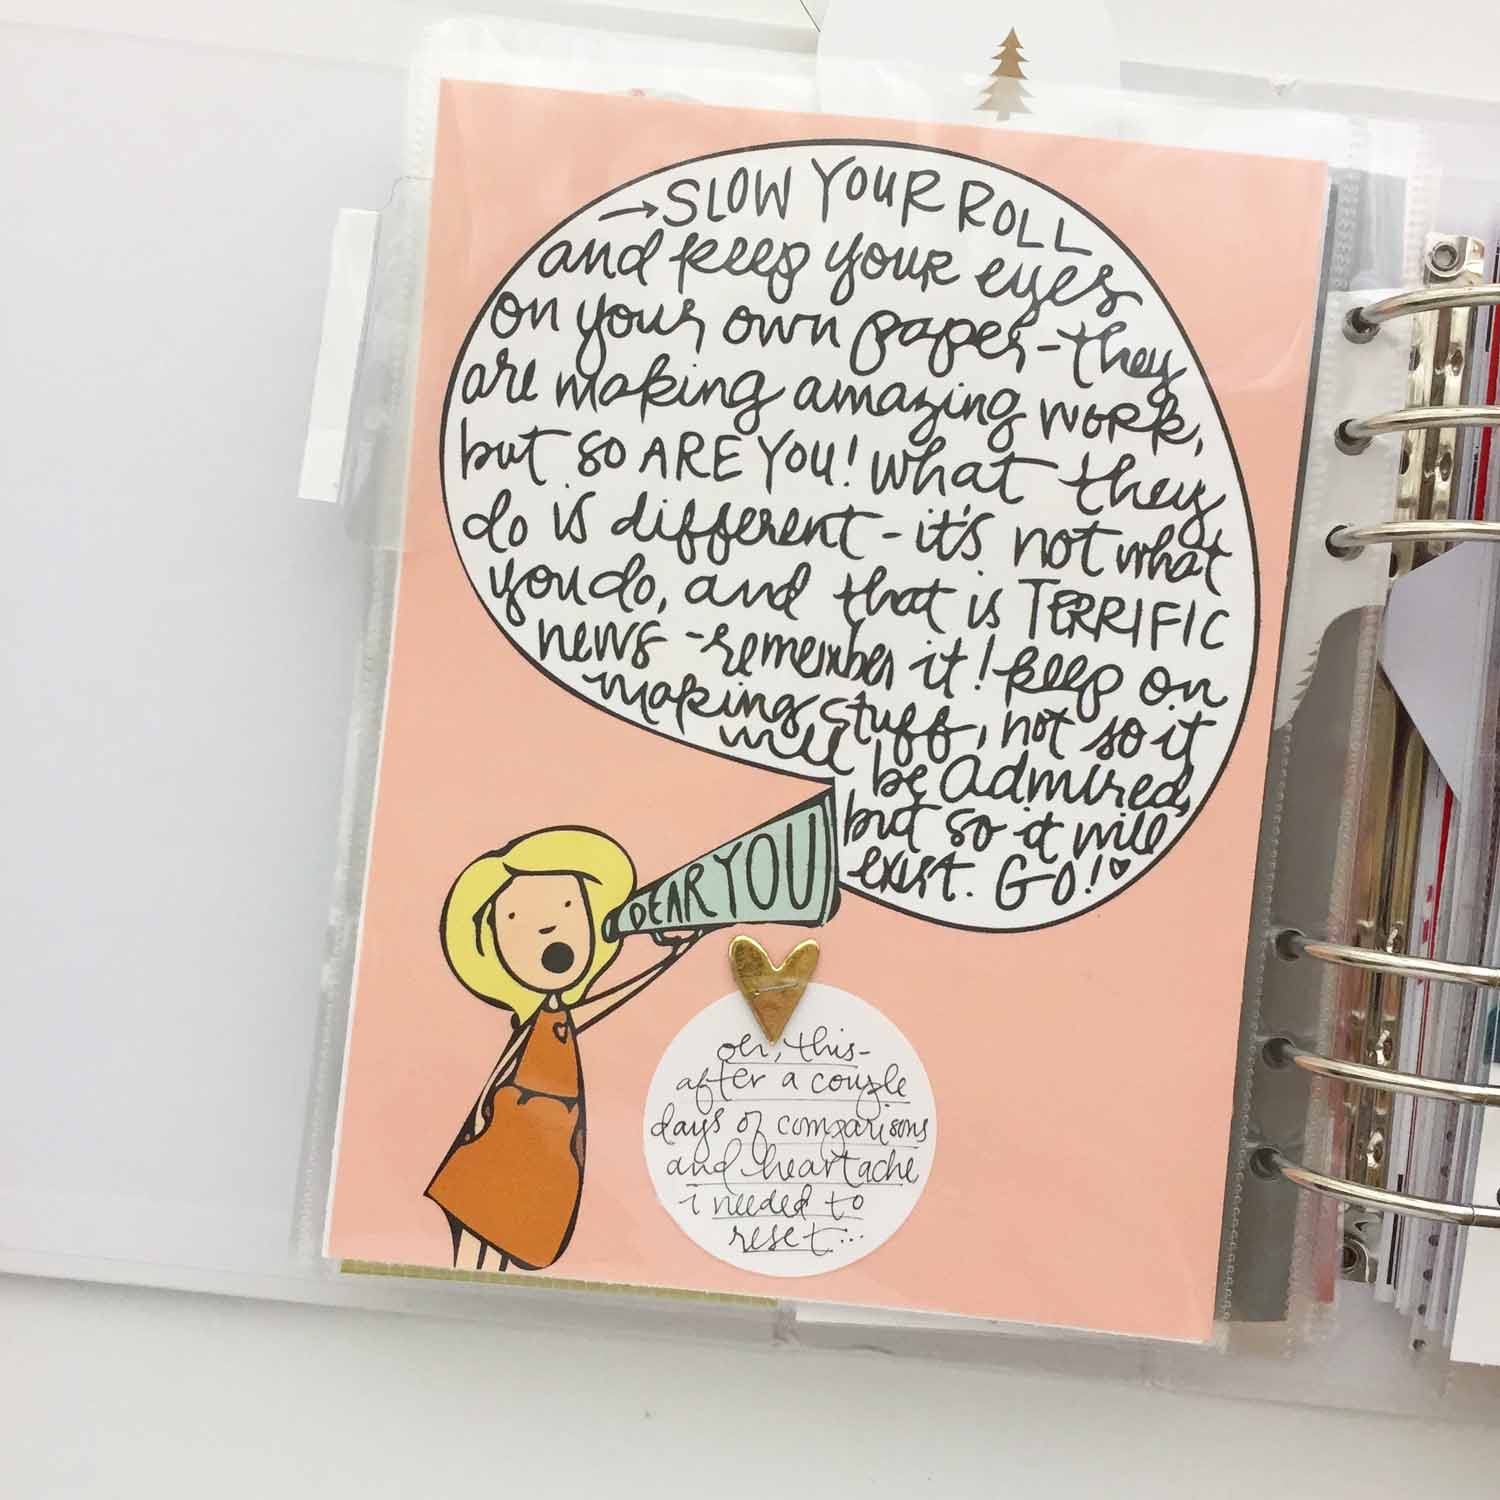 →SLOW YOUR ROLL
and keep your eyes
on your own paper-they
are making amazing work,
but so ARE YOU! what they
do is different - it's not what
you do, and that is TERRIFIC
news -remember it! keep on
making stuff, not so it
will be admired,
but so it will
exist. GO!♡
DEAR YOU
oh, this-
after a couple
days of comparisons
and heartache
i needed to
reset...